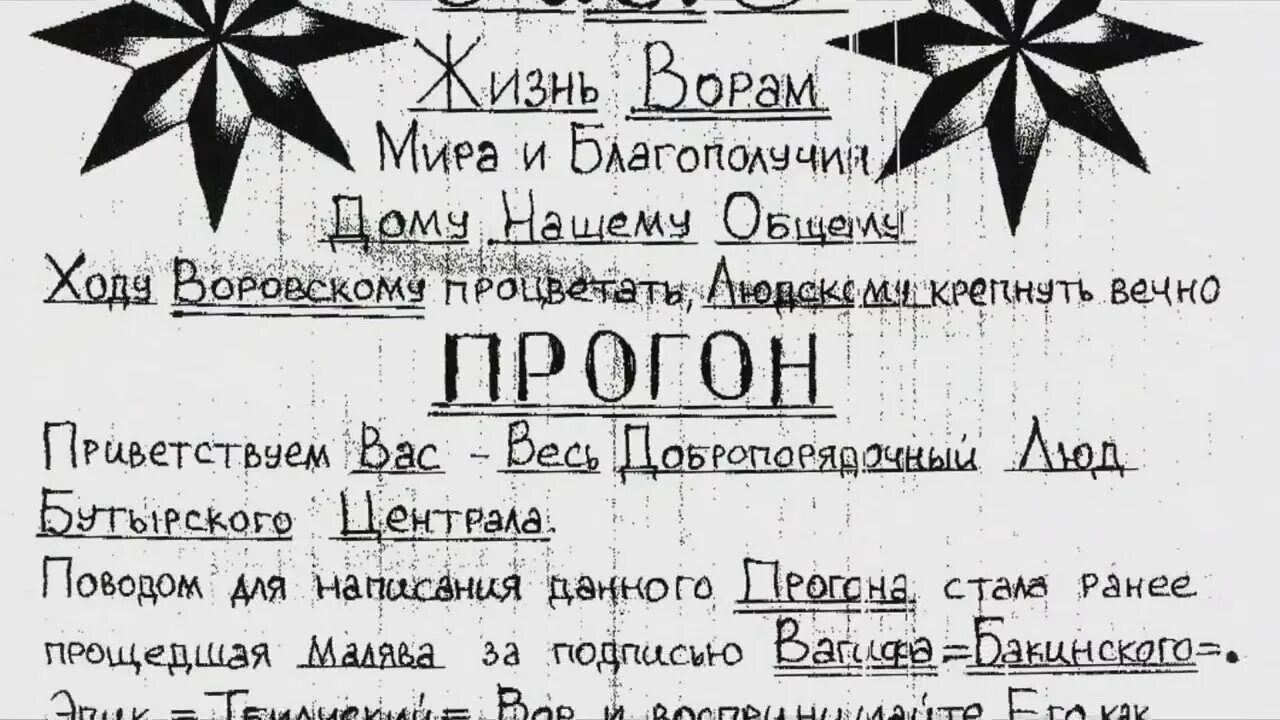 Жизнь Ворам
Мира и Благополучия
Дому Нашему Общему
Ходу Воровскому процветать, Людскому крепнуть вечно
ПРОГОН
Приветствуем Вас - Весь Добропорядочный Люд
Бутырского Централа.
Поводом для написания данного Прогона стала ранее
прошедшая Малява за подписью Вагифа =Бакинского=.
Эпик = Тбилиский = Вор и воспринимайте Его как